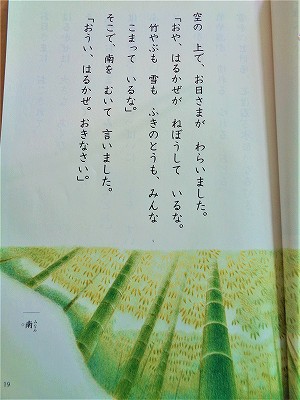 空の 上で、お日さまが わらいました。
「おや、はるかぜが ねぼうして いるな。
竹やぶも 雪も ふきのとうも、みんな
こまって いるな」
そこで、南を むいて 言いました。
「おうい、はるかぜ。おきなさい。」
南
みなみ
19